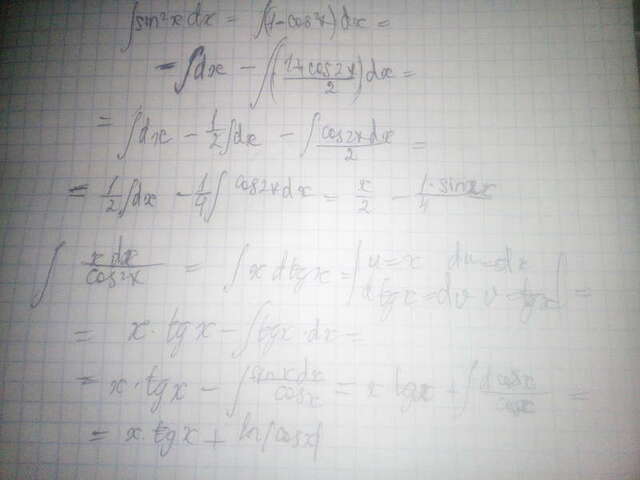 ∫sin²x dx = ∫(1-cos²x)dx =
= ∫dx - ∫(1+cos2x/2)dx =
= ∫dx - 1/2∫dx - ∫cos2x dx/2 =
= 1/2∫dx - 1/4∫cos2x dx = x/2 - 1/4
∫ x dx/cos²x = ∫x d tg x = |u=x du=dx
d tg x = dv v = tg x| =
= x·tg x - ∫tg x·dx =
= x·tg x - ∫sin x dx/cos x = x tg x + ∫d cos x/cos x =
= x tg x + ln|cos x|